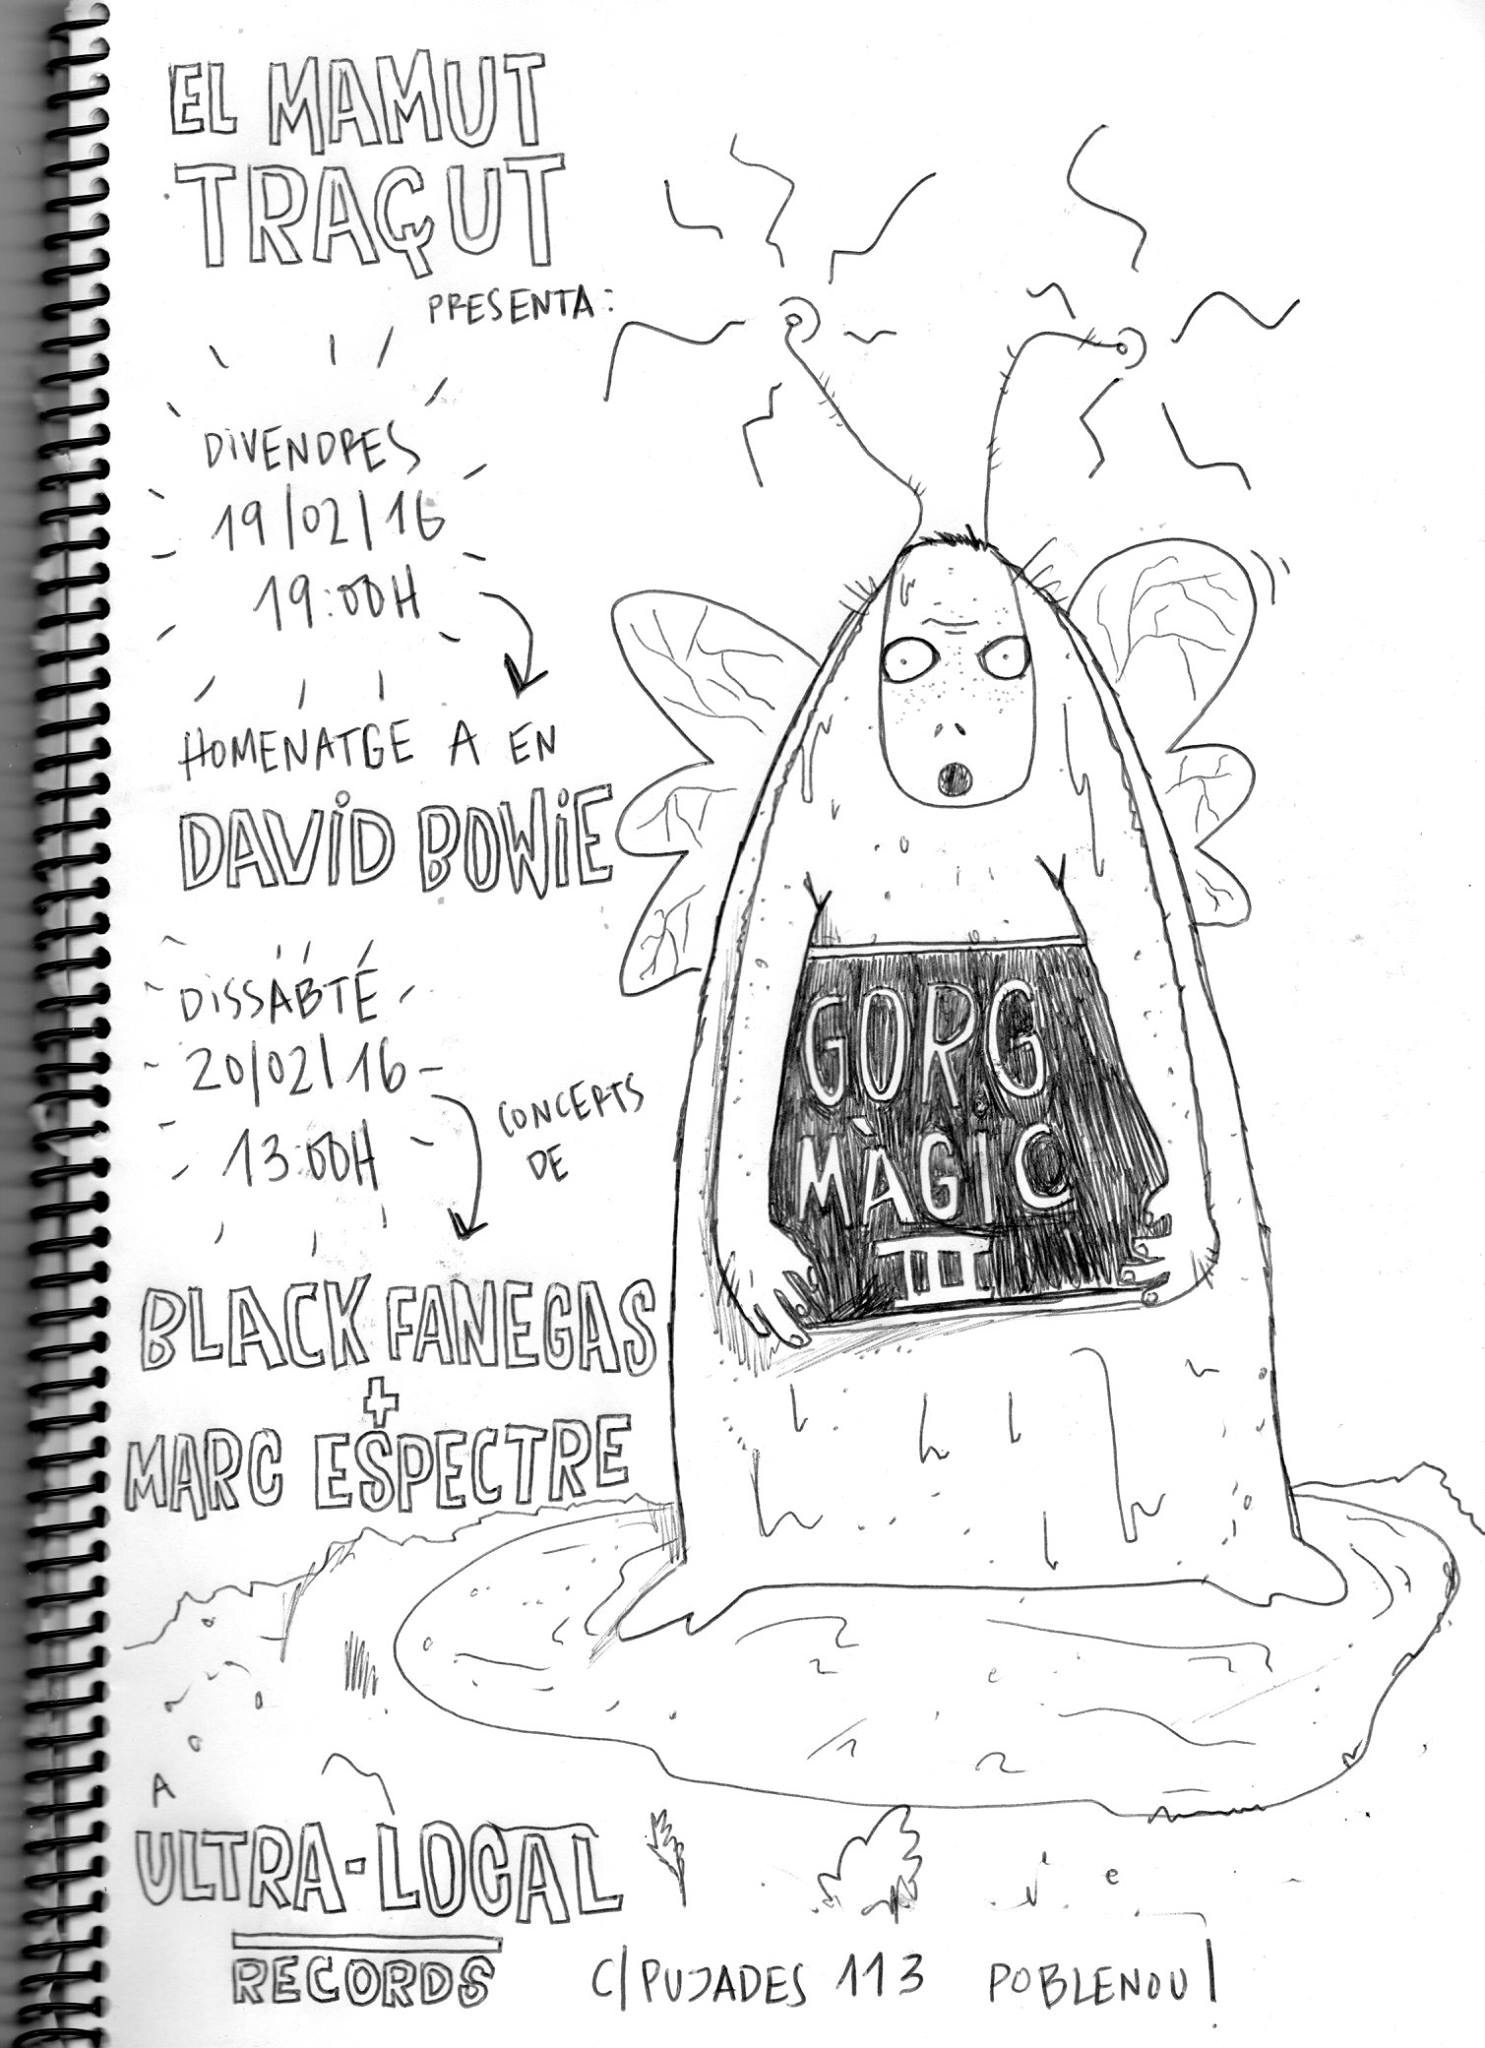 EL MAMUT
TRAÇUT
PRESENTA:
DIVENDRES
19/02/16
19:00H
HOMENATGE A EN
DAVID BOWIE
DISSABTE
20/02/16
13:00H
CONCERTS
DE
BLACK FANEGAS
+
MARC ESPECTRE
GORG
MÀGIC
III
A
ULTRA-LOCAL
RECORDS
C/PUJADES 113 POBLENOU